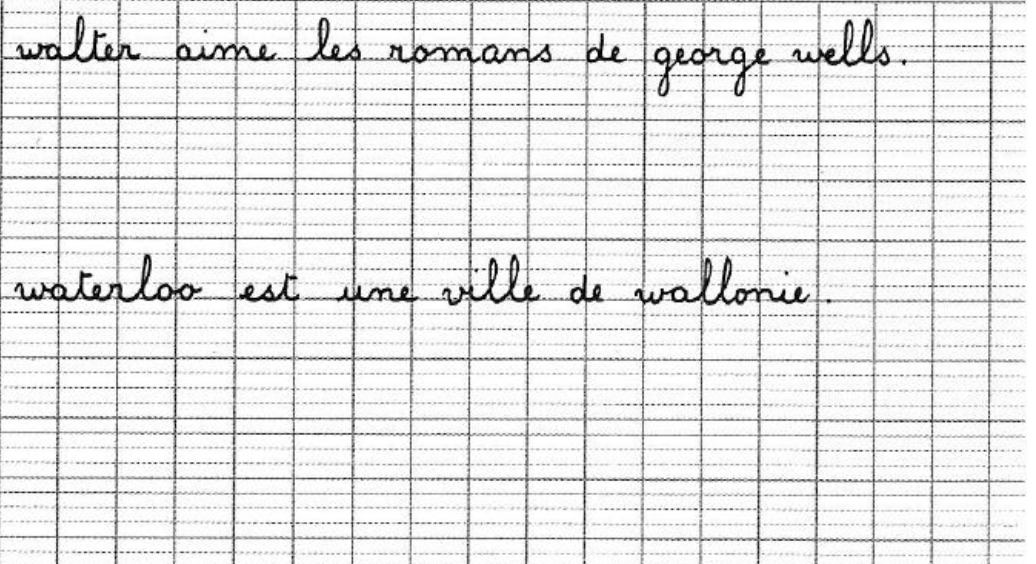 walter aime les romans de george wells.
waterloo est une ville de wallonie.